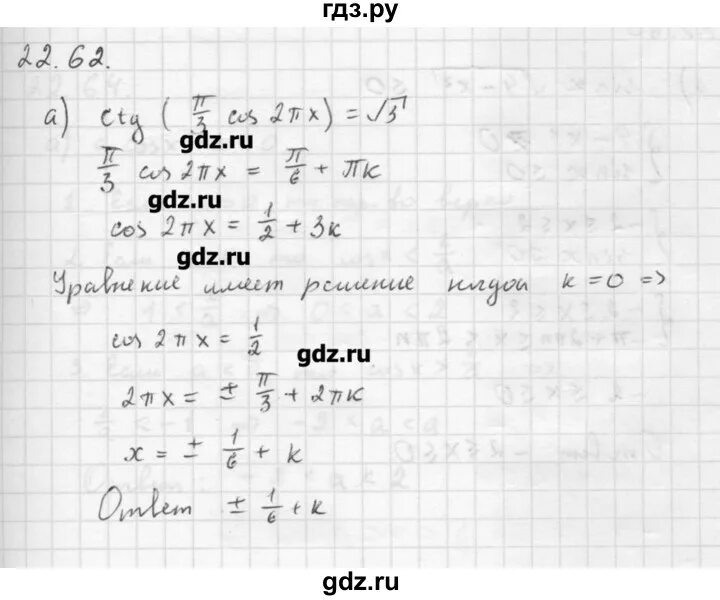 гдз.ру
22.62.
а) ctg (π/3 cos 2πx) = √3
gdz.ru
π/3 cos 2πx = π/6 + πk
gdz.ru
cos 2πx = 1/2 + 3k
gdz.ru
Уравнение имеет решение когда k = 0 =>
cos 2πx = 1/2
gdz.ru
2πx = ± π/3 + 2πk
x = ± 1/6 + k
Ответ ± 1/6 + k
gdz.ru
gdz.ru